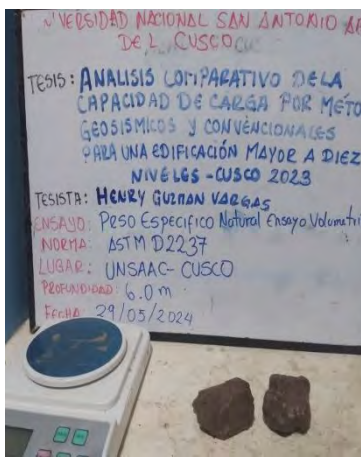 UNIVERSIDAD NACIONAL SAN ANTONIO AB
DE L CUSCO
TESIS: ANALISIS COMPARATIVO DE LA
CAPACIDAD DE CARGA POR METO
GEOSISMICOS Y CONVENCIONALES
PARA UNA EDIFICACIÓN MAYOR A DIEZ
NIVELES - CUSCO 2023
TESISTA: HENRY GUZMAN VARGAS
ENSAYO: PESO ESPECIFICO Natural Ensayo Volumetri
NORMA: ASTM D2237
LUGAR: UNSAAC - CUSCO
PROFUNDIDAD: 6.0 m
FECHA: 29/05/2024